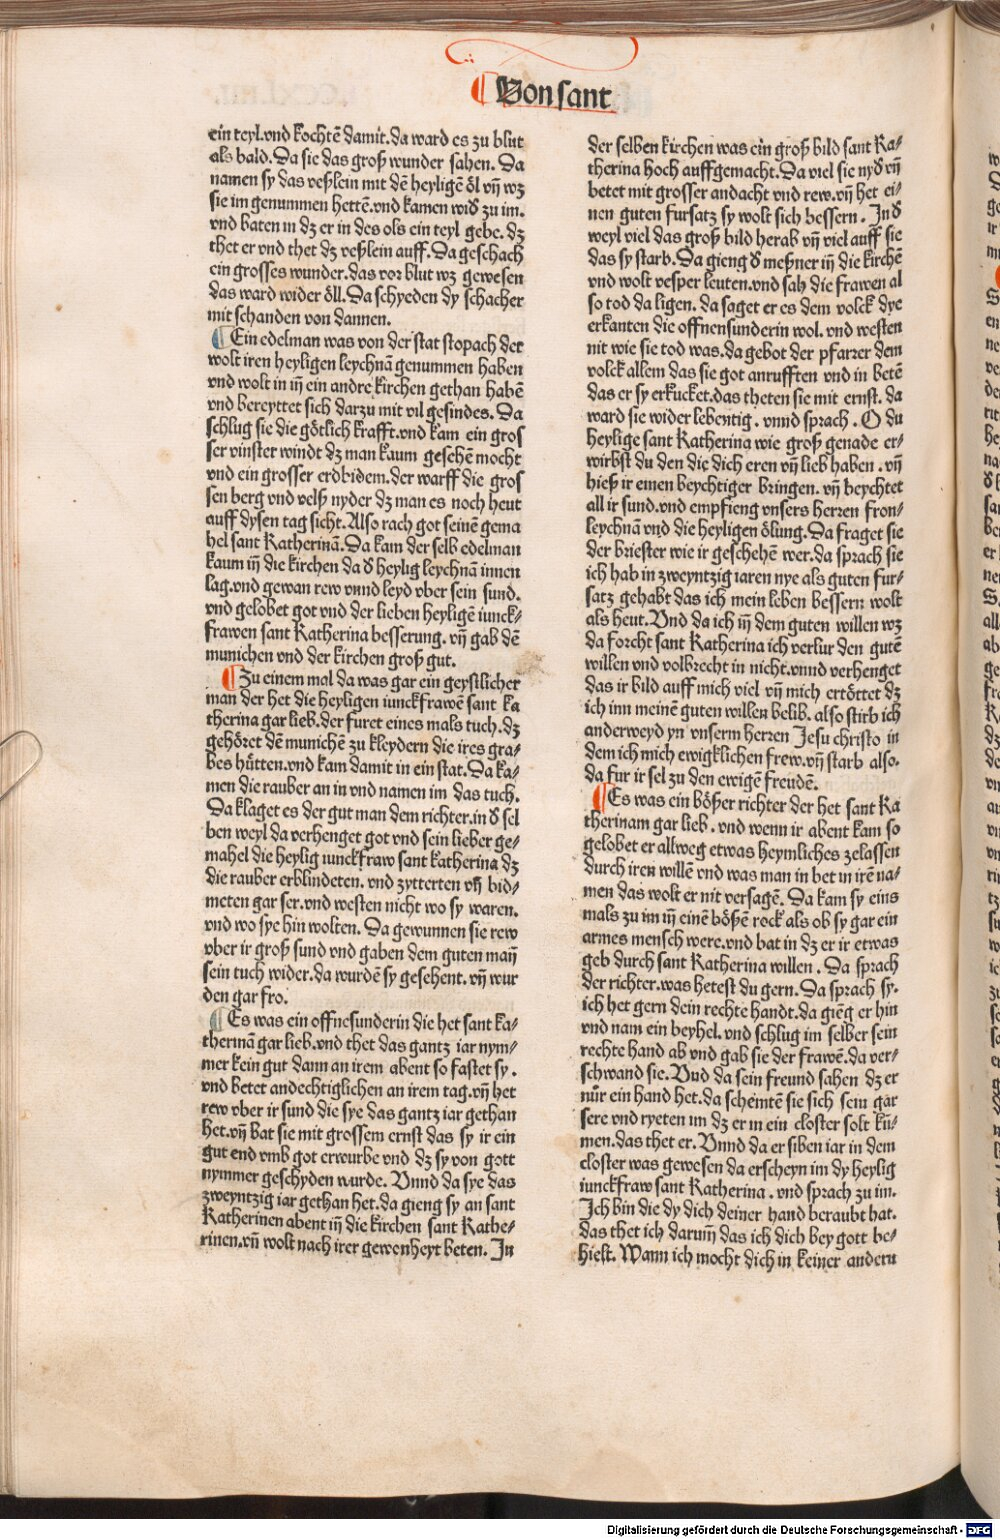 Von sant
ein teyl. vnd kochtē damit. da ward es zu blut
als bald. Da sie das groß wunder sahen. Da
namen sy das veßlein mit dē heyligē öl vn̄ wz
sie im genummen hettē. vnd kamen widʼ zu im.
vnd baten in dz er in des ols ein teyl gebe. dz
thet er vnd thet dz veßlein auff. Da geschach
ein grosses wunder. das vor blut wz gewesen
das ward wider öll. Da schyeden dy schacher
mit schanden von dannen.
¶ Ein edelman was von der stat stopach der
wolt iren heyligen leychnā genummen haben
vnd wolt in in̄ ein andre kirchen gethan habē
vnd bereyttet sich darzu mit vil gesindes. Da
schlug sie die götlich krafft. vnd kam ein gros
ser vinster windt dz man kaum gesehē mocht
vnd ein grosser erdbidem. der warff die gros
sen berg vnd velß nyder dz man es noch heut
auff dysen tag sicht. Also rach got seinē gema
hel sant Katherinā. Da kam der selb edelman
kaum in̄ die kirchen da dʼ heylig leychnā innen
lag. vnd gewan rew vnnd leyd vber sein sund.
vnd gelobet got vnd der lieben heyligē iunck⸗
frawen sant Katherina besserung. vn̄ gab dē
munichen vnd der kirchen groß gut.
¶ Zu einem mal da was gar ein geystlicher
man der het die heyligen iunckfrawē sant ka
therina gar lieb. der furet eines mals tuch. dz
gehöret dē munichē zu kleydern die ires gra⸗
bes hütten. vnd kam damit in ein stat. Da ka⸗
men die rauber an in vnd namen im das tuch.
Da klaget es der gut man dem richter. in dʼ sel
ben weyl da verhenget got vnd sein lieber ge⸗
mahel die heylig iunckfraw sant katherina dz
die rauber erblindeten. vnd zytterten vn̄ bid⸗
meten gar ser. vnd westen nicht wo sy waren.
vnd wo sye hin wolten. Da gewunnen sie rew
vber ir groß sund vnd gaben dem guten man̄
sein tuch wider. da wurdē sy gesehent. vn̄ wur
den gar fro.
¶ Es was ein offnesunderin die het sant ka⸗
therinā gar lieb. vnd thet das gantz iar nym⸗
mer kein gut dann an irem abent so fastet sy.
vnd betet andechtiglichen an irem tag. vn̄ het
rew vber ir sund die sye das gantz iar gethan
het. vn̄ bat sie mit grossem ernst das sy ir ein
gut end vmb got erwurbe vnd dz sy von gott
nymmer geschyden wurde. Vnnd da sye das
zweyntzig iar gethan het. da gieng sy an sant
Katherinen abent in̄ die kirchen sant Kathe⸗
rinen. vn̄ wolt nach irer gewenheyt beten. In
der selben kirchen was ein groß bild sant Ka⸗
therina hoch auffgemacht. Da viel sie nydʼ vn̄
betet mit grosser andacht vnd rew. vn̄ het ei⸗
nen guten fursatz sy wolt sich bessern. In dʼ
weyl viel das groß bild herab vn̄ viel auff sie
das sy starb. Da gieng dʼ meßner in̄ die kirchē
vnd wolt vesper leuten. vnd sah die frawen al
so tod da ligen. da saget er es dem volck dye
erkanten die offnensunderin wol. vnd westen
nit wie sie tod was. da gebot der pfarrer dem
volck allem das sie got anrufften vnd in betē
das er sy erkucket. das theten sie mit ernst. da
ward sie wider lebentig. vnnd sprach. O du
heylige sant Katherina wie groß genade er⸗
wirbst du den die dich eren vn̄ lieb haben. vn̄
hieß ir einen beychtiger bringen. vn̄ beychtet
all ir sund. vnd empfieng vnsers herren fron⸗
leychnā vnd die heyligen ölung. Da fraget sie
der briester wie ir geschehē wer. da sprach sie
ich hab in zweyntzig iaren nye als guten fur⸗
satz gehabt das ich mein leben bessern wolt
als heut. Vnd da ich in̄ dem guten willen wz
da forcht sant Katherina ich verlur den gutē
willen vnd volbrecht in nicht. vnnd verhenget
das ir bild auff mich viel vn̄ mich ertöttet dz
ich inn meinē guten willen belib. also stirb ich
anderweyd yn vnserm herren Jesu christo in
dem ich mich ewigklichen frew. vn̄ starb also.
da fur ir sel zu den ewigē freudē.
¶ Es was ein bößer richter der het sant Ka
therinam gar lieb. vnd wenn ir abent kam so
gelobet er allweg etwas heymliches zelassen
durch iren willē vnd was man in bet in irē na⸗
men das wolt er nit versagē. Da kam sy eins
mals zu im in̄ einē bößē rock als ob sy gar ein
armes mensch were. vnd bat in dz er ir etwas
geb durch sant Katherina willen. Da sprach
der richter. was hetest du gern. Da sprach sy.
ich het gern dein rechte handt. da giēg er hin
vnd nam ein beyhel. vnd schlug im selber sein
rechte hand ab vnd gab sie der frawē. da ver⸗
schwand sie. Vnd da sein freund sahen dz er
nür ein hand het. da schemtē sie sich sein gar
sere vnd ryeten im dz er in ein closter solt kū⸗
men. das thet er. Vnnd da er siben iar in dem
closter was gewesen da erscheyn im dy heylig
iunckfraw sant Katherina. vnd sprach zu im.
Ich bin die dy dich deiner hand beraubt hat.
das thet ich darum̄ das ich dich bey gott be⸗
hielt. Wann ich mocht dich in keiner andern
Digitalisierung gefördert durch die Deutsche Forschungsgemeinschaft - DFG